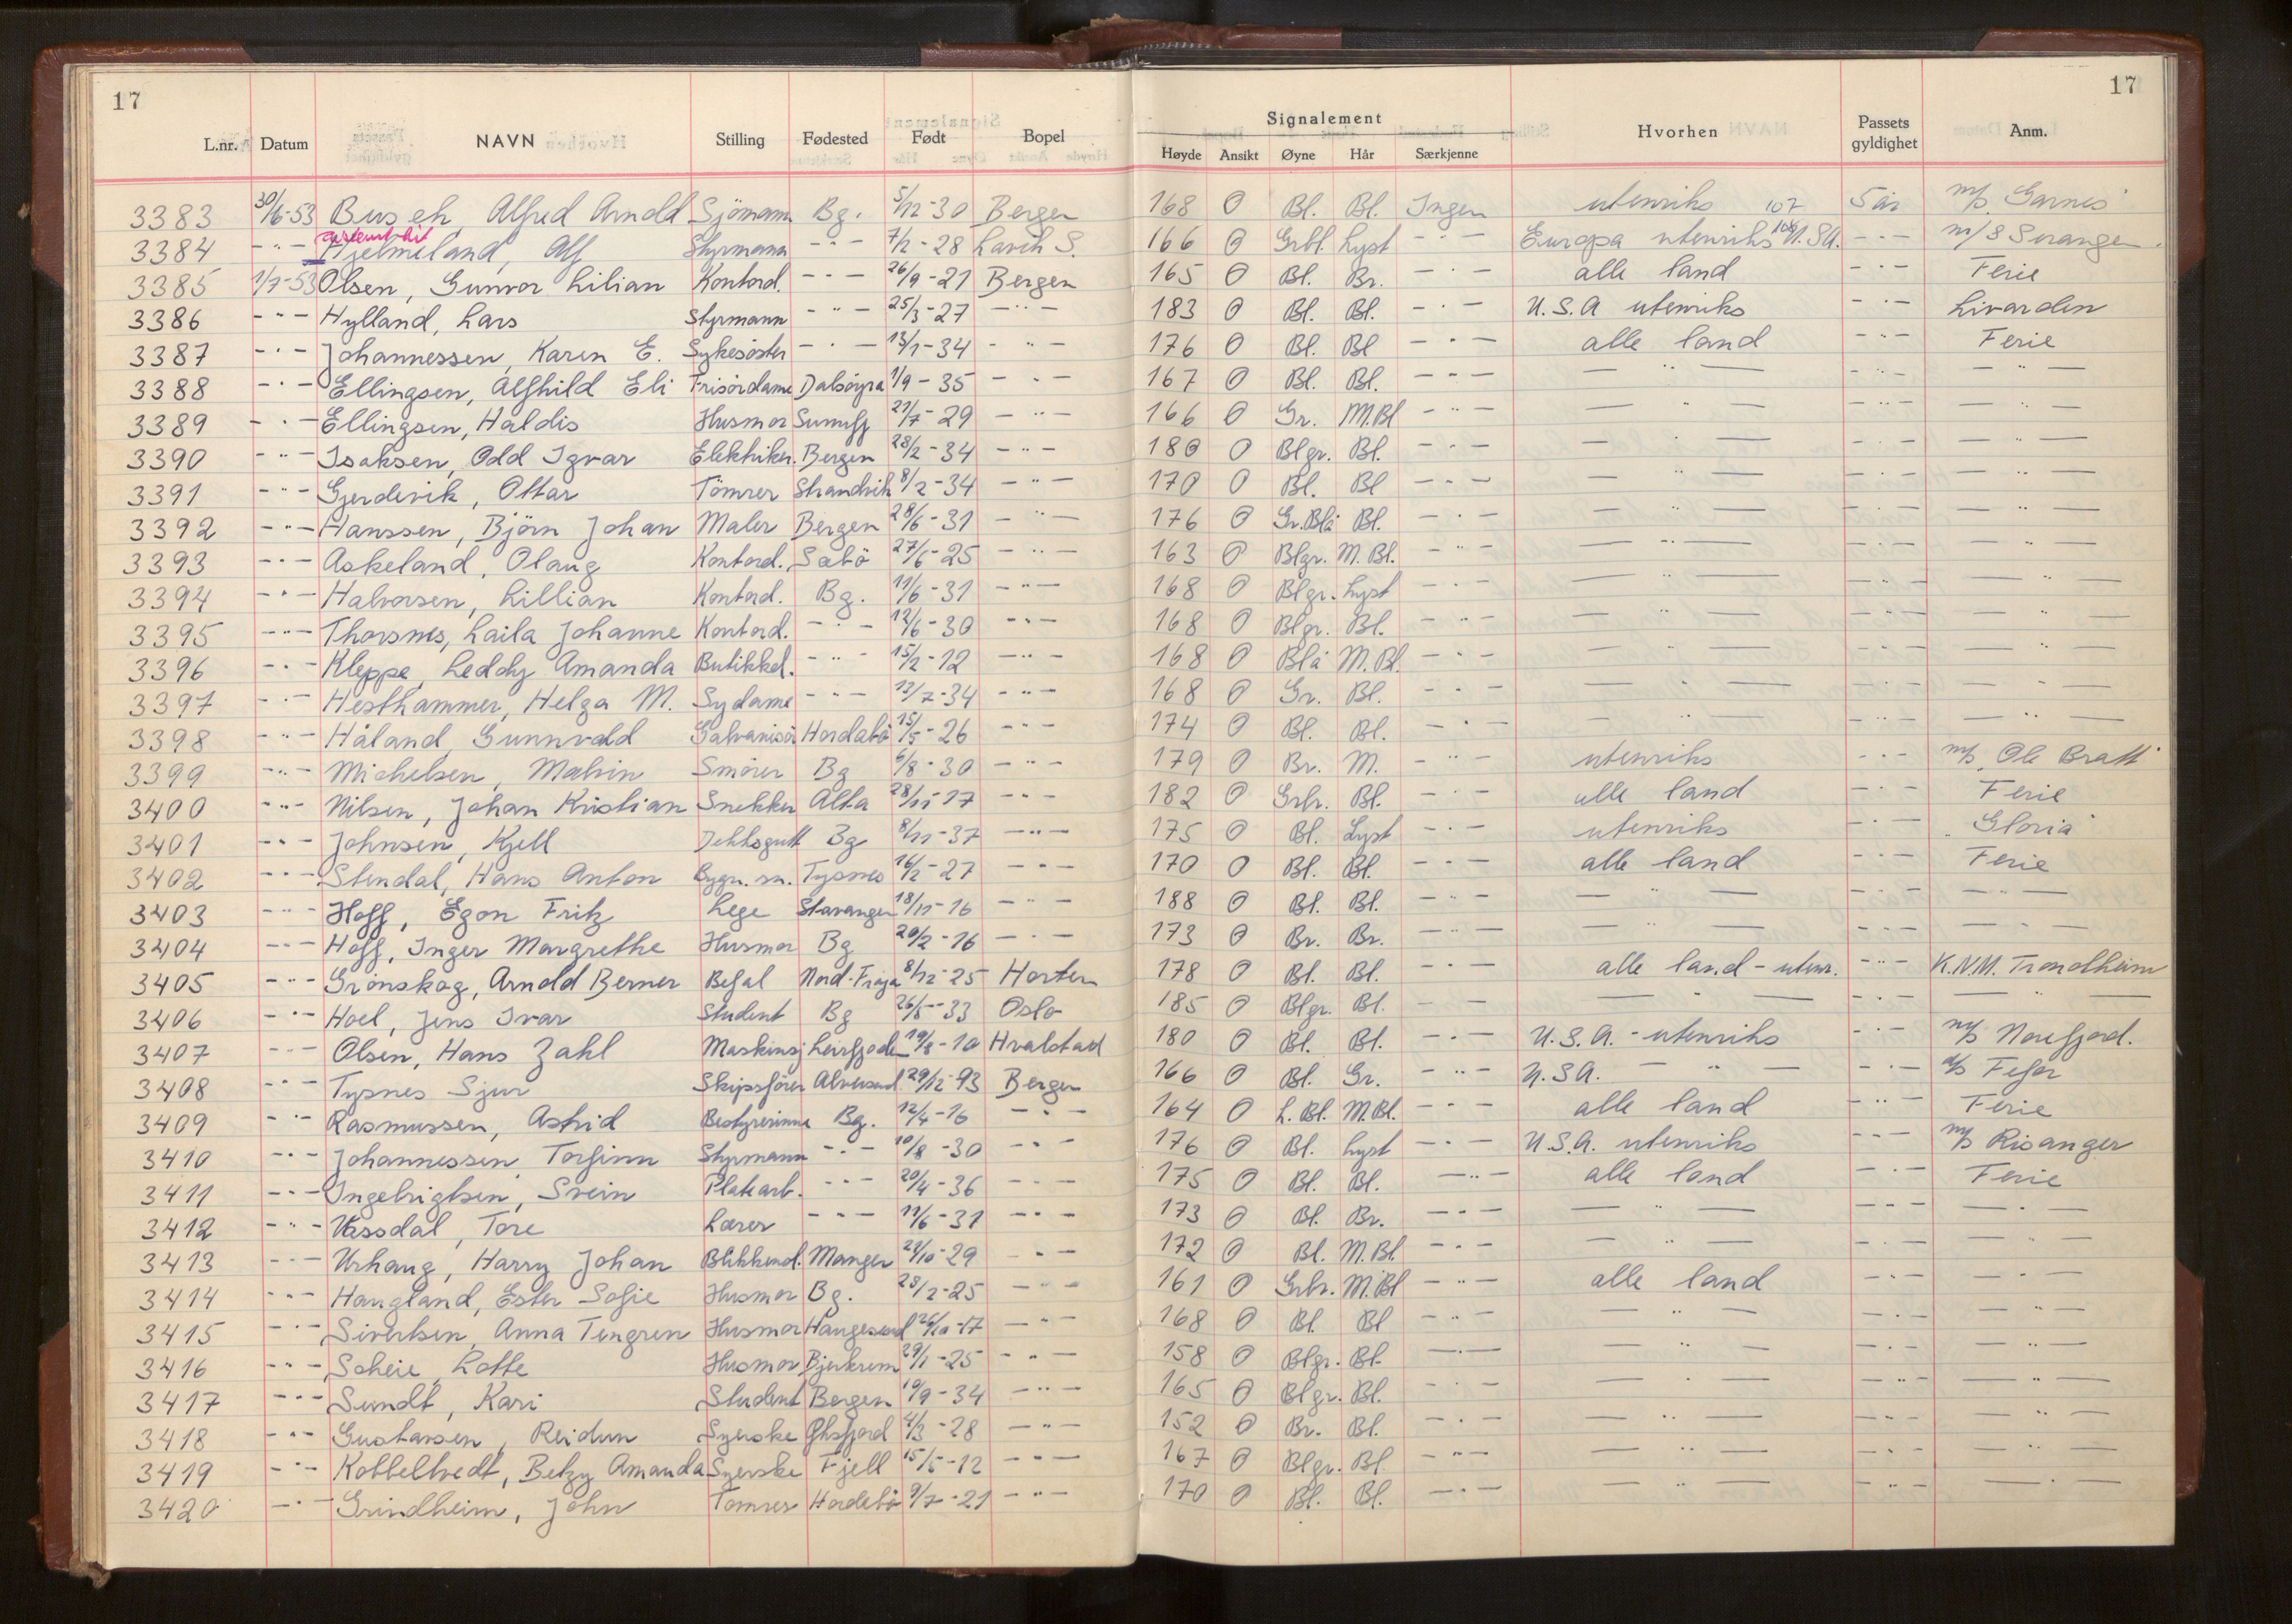 17
17
Signalement
L.nr. Datum NAVN Stilling Fødested Født Bopel Høyde Ansikt Øyne Hår Særkjenne Hvorhen Passets gyldighet Anm.
3383 30/6-53 Busch, Alfred Arnold Sjömann Bg. 5/12-30 Bergen 168 O Bl. Bl. Ingen utenriks 107 5 år m/s "Garnes"
3384 -"- Hjelmeland, Alf Styrmann -"- 7/2-28 Lavik S. 166 O Grbl. Lyst -"- Europa utenriks 108 U.S.A. -"- m/s Soranger.
3385 1/7-53 Olsen, Gunvor Lilian Kontord. -"- 26/9-21 Bergen 165 O Bl. Br. -"- alle land -"- Ferie
3386 -"- Hylland, Lars Styrmann -"- 25/3-27 -"- 183 O Bl. Bl. -"- U.S.A utenriks -"- Livarden
3387 -"- Johannessen, Karen E. Sykesöster -"- 13/1-34 -"- 176 O Bl. Bl -"- alle land -"- Ferie
3388 -"- Ellingsen, Alfhild Eli Frisördame Dalsöyra 1/9-35 -"- 167 O Bl. Bl. -"- -"- -"- -"-
3389 -"- Ellingsen, Haldis Husmor 21/7-29 -"- 166 O Gr. M.Bl -"- -"- -"- -"-
3390 -"- Isaksen, Odd Igvar Elektriker. Bergen 28/2-34 -"- 180 O Blgr. Bl. -"- -"- -"- -"-
3391 -"- Gjerdevik, Ottar Tömrer Strandvik 8/2-34 -"- 170 O Bl. Bl -"- -"- -"- -"-
3392 -"- Hanssen, Björn Johan Maler Bergen 28/6-31 -"- 176 O Gr.Blå Bl. -"- -"- -"- -"-
3393 -"- Askeland, Olaug Kontord. Sæbö 27/6-25 -"- 163 O Blgr. M.Bl. -"- -"- -"- -"-
3394 -"- Halvorsen, Lillian Kontord. Bg. 11/6-31 -"- 168 O Blgr. Lyst -"- -"- -"- -"-
3395 -"- Thorsnes, Laila Johanne Kontord. -"- 12/6-30 -"- 168 O Blgr. Bl. -"- -"- -"- -"-
3396 -"- Kleppe, Leddy Amanda Butikkd. -"- 15/2-12 -"- 168 O Blå M.Bl. -"- -"- -"- -"-
3397 -"- Hesthammer, Helga M. Sydame -"- 13/7-34 -"- 168 O Gr. Bl. -"- -"- -"- -"-
3398 -"- Håland, Gunnvald Galvanisör Hordabö 15/5-26 -"- 174 O Bl. Bl. -"- -"- -"- -"-
3399 -"- Michelsen, Malvin Smörer Bg 6/8-30 -"- 179 O Br. M. -"- utenriks -"- m/s "Ole Bratt"
3400 -"- Nilsen, Johan Kristian Snekker Alta 28/11-17 -"- 182 O Grbr. Bl. -"- alle land -"- Ferie
3401 -"- Johnsen, Kjell Dekksgutt Bg 8/11-37 -"- 175 O Bl. Lyst -"- utenriks -"- "Gloria"
3402 -"- Stendal, Hans Anton Bygn.sn. Tysnes 16/2-27 -"- 170 O Bl. Bl. -"- alle land -"- Ferie
3403 -"- Hoff, Egon Fritz Lege Stavanger 18/11-16 -"- 188 O Bl. Bl. -"- -"- -"- -"-
3404 -"- Hoff, Inger Margrethe Husmor Bg 20/2-16 -"- 173 O Br. Br. -"- -"- -"- -"-
3405 -"- Grönskag, Arnold Berner Befal Nord-Fröja 8/12-25 Horten 178 O Bl. Bl. -"- alle land - utenr. -"- K.N.M. Trondheim
3406 -"- Hoel, Jens Ivar Student Bg 26/5-33 Oslo 185 O Blgr. Bl. -"- -"- -"- -"-
3407 -"- Olsen, Hans Zahl Maskinsj Leirfjorden 19/8-10 Hvalstad 180 O Bl. Bl. -"- U.S.A. - utenriks -"- m/s Norefjord.
3408 -"- Tysnes Sjur Skipsförer Alversund 29/12-93 Bergen 166 O Bl. Gr. -"- U.S.A. -"- -"- d/s Fefor
3409 -"- Rasmussen, Astrid Bestyrerinne Bg. 12/4-16 -"- 164 O L.Bl. M.Bl. -"- alle land -"- Ferie
3410 -"- Johannessen, Torfinn Styrmann -"- 10/8-30 -"- 176 O Bl. Lyst -"- U.S.A. utenriks -"- m/s Risanger
3411 -"- Ingebrigtsen, Svein Platearb. -"- 20/4-36 -"- 175 O Bl. Bl. -"- alle land -"- Ferie
3412 -"- Vassdal, Tore Lærer -"- 11/6-31 -"- 173 O Bl. Br. -"- -"- -"- -"-
3413 -"- Urhaug, Harry Johan Blikkensl. Manger 21/10-29 -"- 172 O Bl. M.Bl -"- -"- -"- -"-
3414 -"- Haugland, Ester Sofie Husmor Bg. 28/2-25 -"- 161 O Grbr. M.Bl -"- alle land -"- -"-
3415 -"- Sivertsen, Anna Tengren Husmor Haugesund 26/10-17 -"- 168 O Bl. Bl -"- -"- -"- -"-
3416 -"- Scheie, Lotte Husmor Bjerkrem 29/1-25 -"- 158 O Blgr. Bl. -"- -"- -"- -"-
3417 -"- Sundt, Kari Student Bergen 10/9-34 -"- 165 O Blgr. Bl. -"- -"- -"- -"-
3418 -"- Gustavsen, Reidun Syerske 4/3-28 -"- 152 O Br. Bl. -"- -"- -"- -"-
3419 -"- Kobbeltvedt, Betzy Amanda Syerske Fjell 15/5-12 -"- 167 O Blgr. Bl -"- -"- -"- -"-
3420 -"- Grindheim, John Tömrer Hordebö 9/7-21 -"- 170 O Bl. Bl. -"- -"- -"- -"-